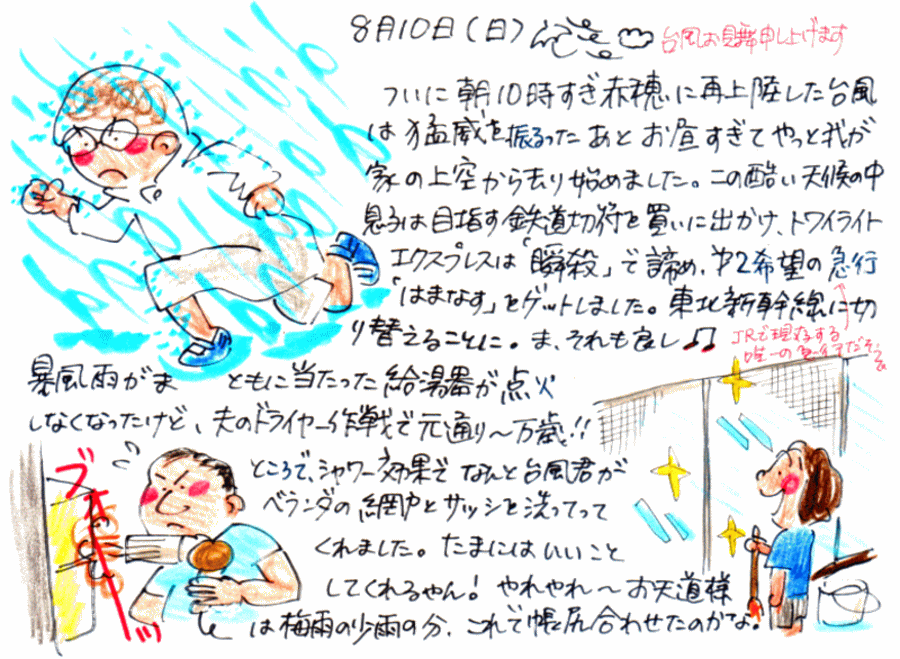 8月10日(日)
台風お見舞申し上げます
ついに朝10時すぎ赤穂に再上陸した台風
は猛威を振るったあとお昼すぎてやっと我が
家の上空から去り始めました。この酷い天候の中
息子は目指す鉄道切符を買いに出かけ、トワイライト
エクスプレスは「瞬殺」で諦め、才2希望の急行
「はまなす」とゲットしました。東北新幹線に切
り替えることに。ま、それも良し♫
JRで現存する
唯一の急行だそう
暴風雨がま ともに当たった給湯器が点火
しなくなったけど、夫のドライヤー作戦で元通り〜万歳!!
ブオーッ
ところで、シャワー効果でなんと台風君が
ベランダの網戸とサッシを洗ってって
くれました。たまにはいいこと
してくれるやん! やれやれ〜お天道様
は梅雨の少雨の分、これで帳尻合わせたのかな。